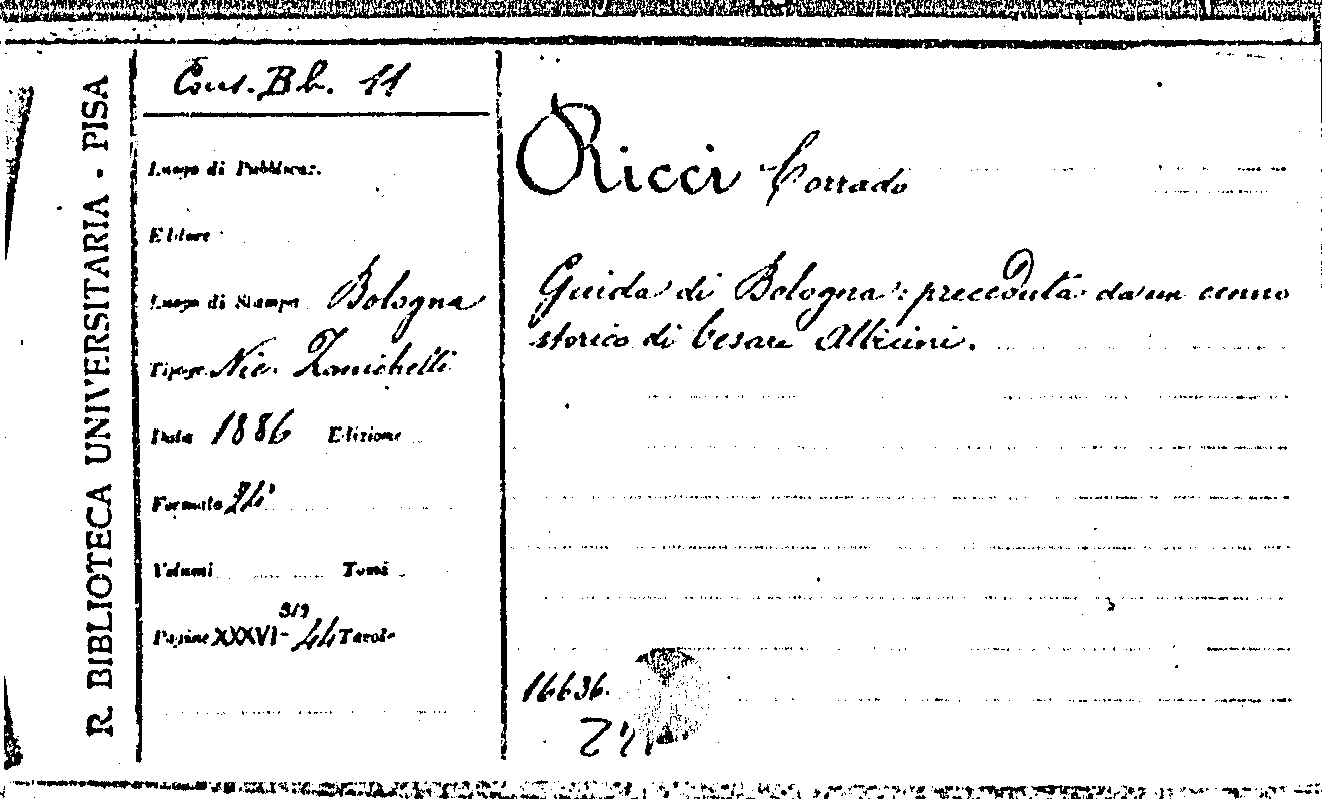 R. BIBLIOTECA UNIVERSITARIA - PISA
Cons. Bb. 11
Luogo di Pubblicaz.
Editore
Luogo di Stampa Bologna
Tipogr. Nic. Zanichelli
Data 1886 Edizione
Formato 24°
Volumi Tomi
Pagine XXXVI-319 44 Tavole
Ricci Corrado
Guida di Bologna: preceduta da un cenno
storico di Cesare Albicini.
16636.